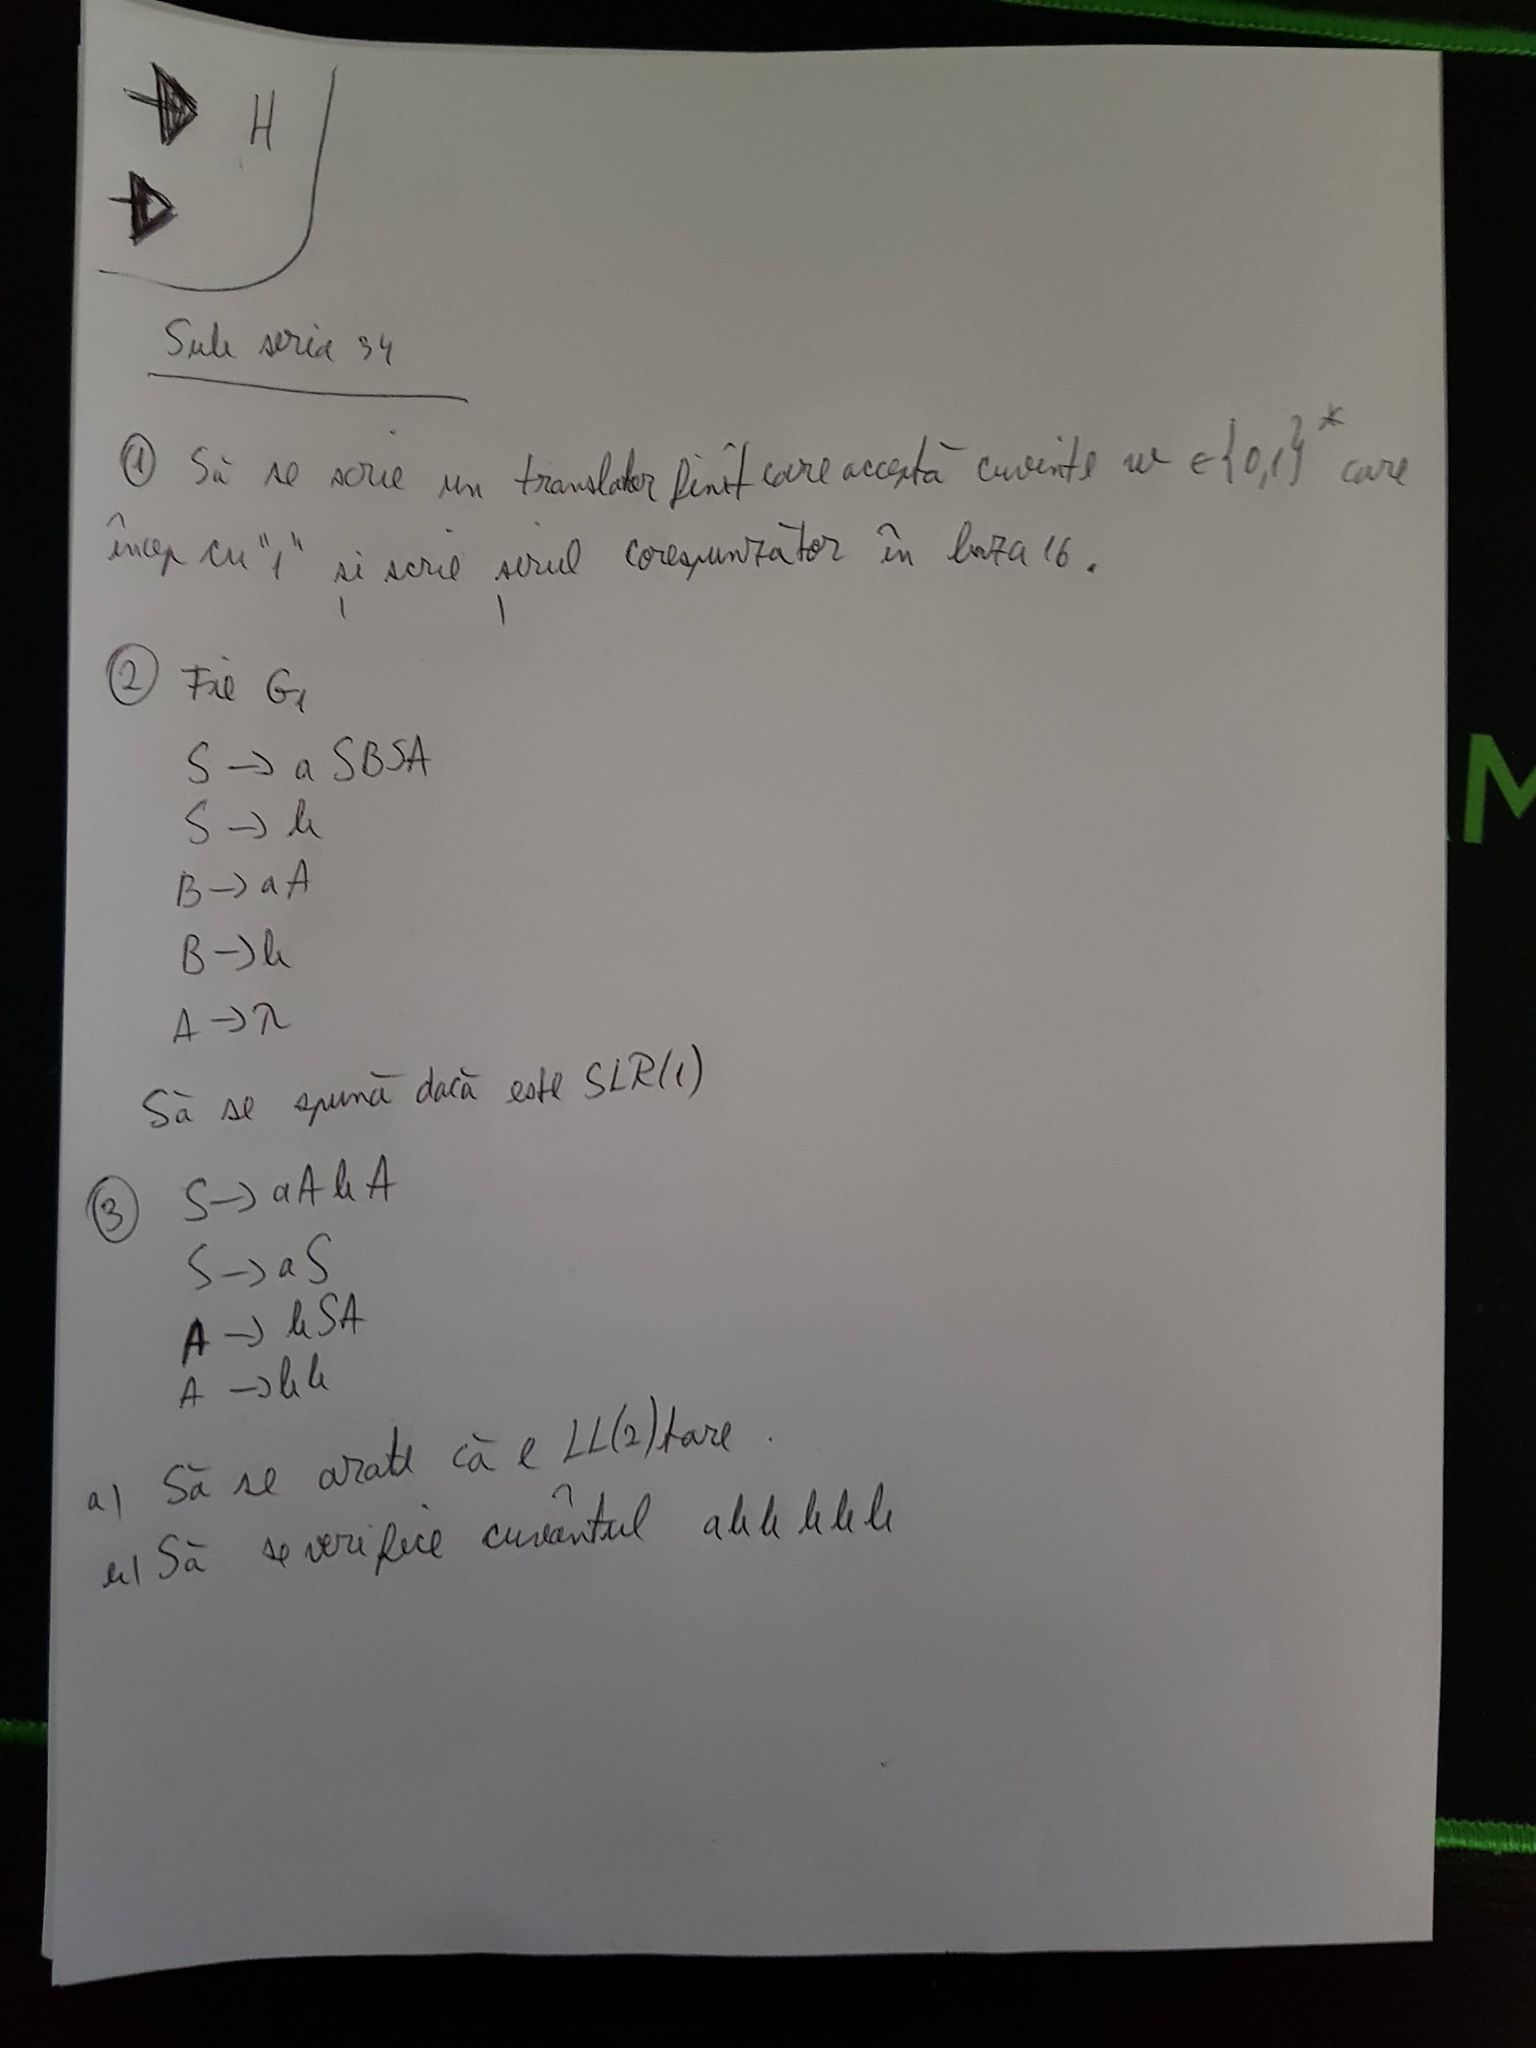 H
Sub seria 34
① Să se scrie un translator finit care acceptă cuvinte w ∈ {0,1}* care
încep cu "1" și scrie șirul corespunzător în baza 16.
② Fie G1
S → a SBSA
S → b
B → aA
B → b
A → λ
Să se spună dacă este SLR(1)
③ S → aAbA
S → aS
A → bSA
A → bb
a) Să se arate că e LL(2) tare.
b) Să se verifice cuvântul abbbbb
M